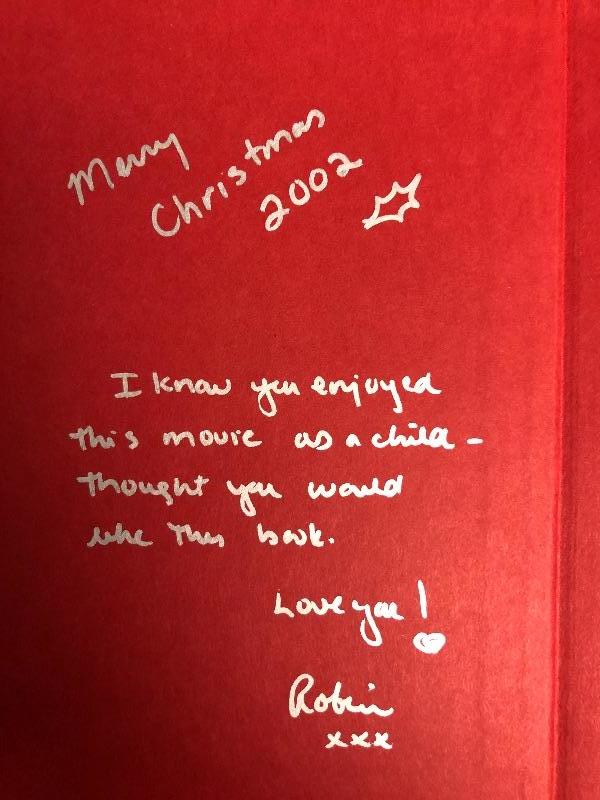 Merry
Christmas
2002
I know you enjoyed
this movie as a child -
thought you would
like this book.
Love you!
Robin
xxx